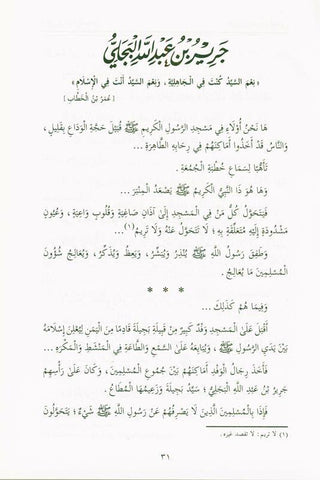 جَرِيرُ بْنُ عَبْدِ اللَّهِ الْبَجَلِيُّ
« نِعْمَ السَّيِّدُ كُنْتَ فِي الْجَاهِلِيَّةِ ، وَنِعْمَ السَّيِّدُ أَنْتَ فِي الْإِسْلَامِ »
[ عُمَرُ بْنُ الْخَطَّابِ ]
هَا نَحْنُ أُولَاءِ فِي مَسْجِدِ الرَّسُولِ الْكَرِيمِ ﷺ قُبَيْلَ حَجَّةِ الْوَدَاعِ بِقَلِيلٍ ،
وَالنَّاسُ قَدْ أَخَذُوا أَمَاكِنَهُمْ فِي رِحَابِهِ الطَّاهِرَةِ ...
تَأَهُّبًا لِسَمَاعِ خُطْبَةِ الْجُمُعَةِ .
وَهَا هُوَ ذَا النَّبِيُّ الْكَرِيمُ ﷺ يَصْعَدُ الْمِنْبَرَ ...
فَيَتَحَوَّلُ كُلُّ مَنْ فِي الْمَسْجِدِ إِلَىٰ آذَانٍ صَاغِيَةٍ وَقُلُوبٍ وَاعِيَةٍ ، وَعُيُونٍ
مَشْدُودَةٍ إِلَيْهِ مُتَعَلِّقَةٍ بِهِ ؛ لَا تَتَحَوَّلُ عَنْهُ وَلَا تَرِيمُ(١) ...
وَطَفِقَ رَسُولُ اللَّهِ ﷺ يُنْذِرُ وَيُبَشِّرُ ، وَيَعِظُ وَيُذَكِّرُ ، وَيُعَالِجُ شُؤُونَ
الْمُسْلِمِينَ مَا يُعَالِجُ .
* * *
وَفِيمَا هُمْ كَذَلِكَ ...
أَقْبَلَ عَلَىٰ الْمَسْجِدِ وَفْدٌ كَبِيرٌ مِنْ قَبِيلَةِ بَجِيلَةَ قَادِمًا مِنَ الْيَمَنِ لِيُعْلِنَ إِسْلَامَهُ
بَيْنَ يَدَيِ الرَّسُولِ ﷺ ، وَيُبَايِعَهُ عَلَىٰ السَّمْعِ وَالطَّاعَةِ فِي الْمَنْشَطِ وَالْمَكْرَهِ ...
فَأَخَذَ رِجَالُ الْوَفْدِ أَمَاكِنَهُمْ بَيْنَ جُمُوعِ الْمُسْلِمِينَ ، وَكَانَ عَلَىٰ رَأْسِهِمْ
جَرِيرُ بْنُ عَبْدِ اللَّهِ الْبَجَلِيُّ ؛ سَيِّدُ بَجِيلَةَ وَزَعِيمُهَا الْمُطَاعُ .
فَإِذَا بِالْمُسْلِمِينَ الَّذِينَ لَا يَصْرِفُهُمْ عَنْ رَسُولِ اللَّهِ ﷺ شَيْءٌ ؛ يَتَحَوَّلُونَ
(١) لا تريم : لا تقصد غيره .
٣١